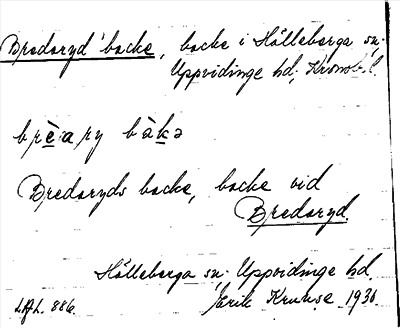 Bredaryd'backe, backe i Hälleberga sn.
Uppvidinge hd, Kronob. l.
backe
Bredaryds backe, backe vid
Bredaryd.
Hälleberga sn. Uppvidinge hd.
L.A.L. 886. Erik Kruuse 1930